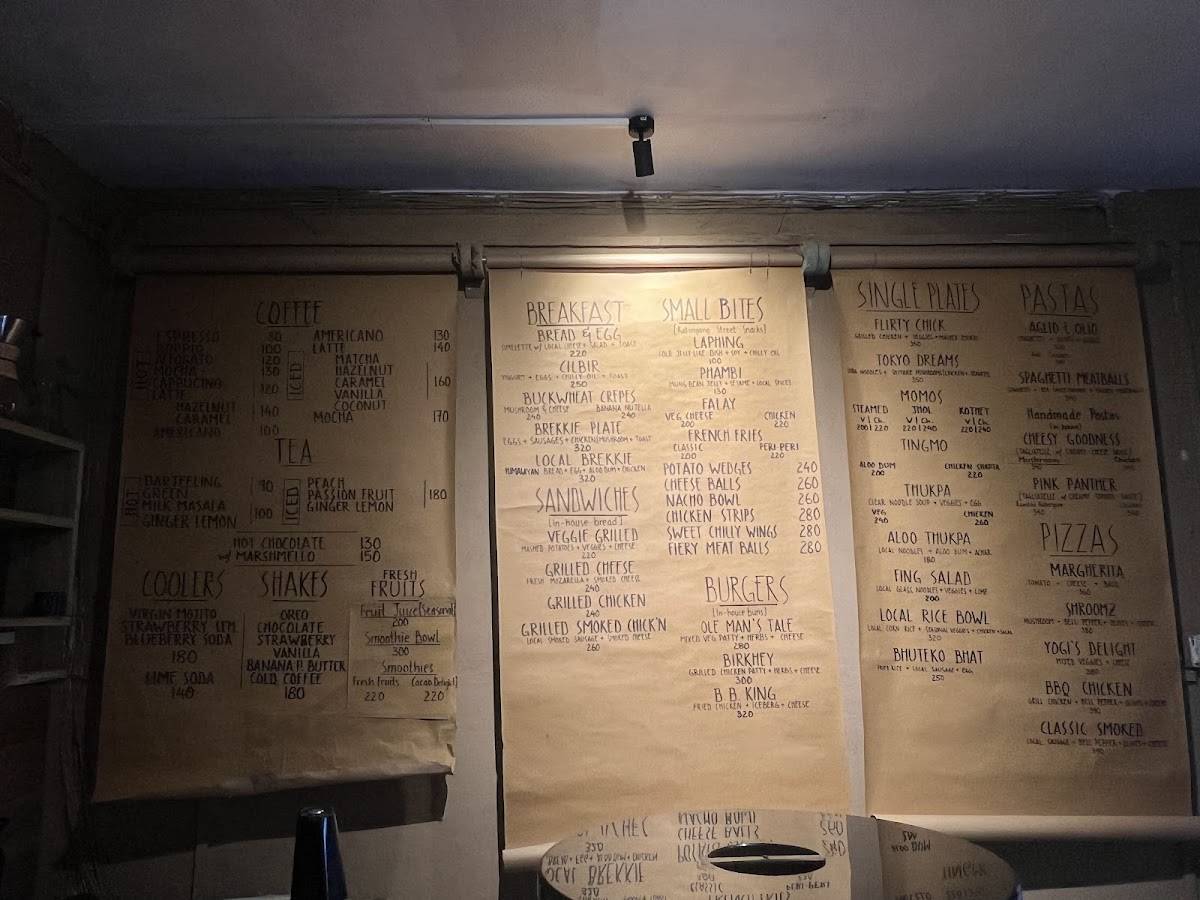 COFFEE
HOT
ESPRESSO 80
100
120
MOCHA 130
CAPPUCINO
LATTE 120
HAZELNUT
CARAMEL 140
AMERICANO 100
AMERICANO 130
LATTE 140
ICED
MATCHA
HAZELNUT
CARAMEL 160
VANILLA
COCONUT
MOCHA 170
TEA
HOT
DARJEELING 90
GREEN
MILK MASALA
GINGER LEMON 100
ICED
PEACH
PASSION FRUIT 180
GINGER LEMON
HOT CHOCOLATE 130
w/ MARSHMELLO 150
COOLERS
VIRGIN MOJITO
STRAWBERRY
BLUEBERRY SODA
180
LIME SODA
140
SHAKES
OREO
CHOCOLATE
STRAWBERRY
VANILLA
BANANA P. BUTTER
COLD COFFEE
180
FRESH
FRUITS
Fruit Juice [Seasonal]
200
Smoothie Bowl
300
Smoothies
Fresh Fruits Cacao Delight
220 220
BREAKFAST
BREAD & EGG
OMELETTE w/ LOCAL CHEESE + SALAD + TOAST
220
CILBIR
YOGURT + EGGS + CHILLY OIL + TOAST
250
BUCKWHEAT CREPES
MUSHROOM & CHEESE BANANA NUTELLA
240 240
BREKKIE PLATE
EGGS + SAUSAGES + CHICKEN/MUSHROOM + TOAST
320
LOCAL BREKKIE
HIMALAYAN BREAD + EGG + ALOO DUM + CHICKEN
320
SANDWICHES
[in-house bread]
VEGGIE GRILLED
MASHED POTATOES + VEGGIES + CHEESE
220
GRILLED CHEESE
FRESH MOZARELLA + SMOKED CHEESE
240
GRILLED CHICKEN
240
GRILLED SMOKED CHICK'N
LOCAL SMOKED SAUSAGE + SMOKED CHEESE
260
SMALL BITES
[Kalimpong Street Snacks]
LAPHING
COLD JELLY LIKE DISH + SOY + CHILLY OIL
100
PHAMBI
MUNG BEAN JELLY + SESAME + LOCAL SPICES
130
FALAY
VEG, CHEESE CHICKEN
200 220
FRENCH FRIES
CLASSIC PERI-PERI
200 220
POTATO WEDGES 240
CHEESE BALLS 260
NACHO BOWL 260
CHICKEN STRIPS 280
SWEET CHILLY WINGS 280
FIERY MEAT BALLS 280
BURGERS
[In-house buns]
OLE MAN'S TALE
MIXED VEG PATTY + HERBS + CHEESE
280
BIRKHEY
GRILLED CHICKEN PATTY + HERBS + CHEESE
300
B.B. KING
FRIED CHICKEN + ICEBERG + CHEESE
320
SINGLE PLATES
FLIRTY CHICK
GRILLED CHICKEN + VEGGIES + MASHED POTATO
350
TOKYO DREAMS
350
MOMOS
STEAMED JHOL KOTHEY
V | Ch. V | Ch. V | Ch.
200 | 220 220 | 240 220 | 240
TINGMO
ALOO DUM CHICKEN SHAPTA
200 220
THUKPA
CLEAR NOODLE SOUP + VEGGIES + EGG
VEG CHICKEN
240 260
ALOO THUKPA
LOCAL NOODLES + ALOO DUM + ACHAR
180
FING SALAD
LOCAL GLASS NOODLES + VEGGIES + LIME
200
LOCAL RICE BOWL
LOCAL CORN RICE + SEASONAL VEGGIES + CHICKEN + SALAD
320
BHUTEKO BHAT
FRIED RICE + LOCAL SAUSAGE + EGG
250
PASTAS
AGLIO & OLIO
SPAGHETTI MEATBALLS
Handmade Pastas
[in house]
CHEESY GOODNESS
Mushrooms Chicken
PINK PANTHER
PIZZAS
MARGHERITA
TOMATO + CHEESE + BASIL
SHROOMZ
MUSHROOM + BELL PEPPER + OLIVES + CHEESE
YOGI'S DELIGHT
MIXED VEGGIES + CHEESE
BBQ CHICKEN
GRILL CHICKEN + BELL PEPPER + OLIVES + CHEESE
CLASSIC SMOKED
LOCAL SAUSAGE + BELL PEPPER + OLIVES + CHEESE